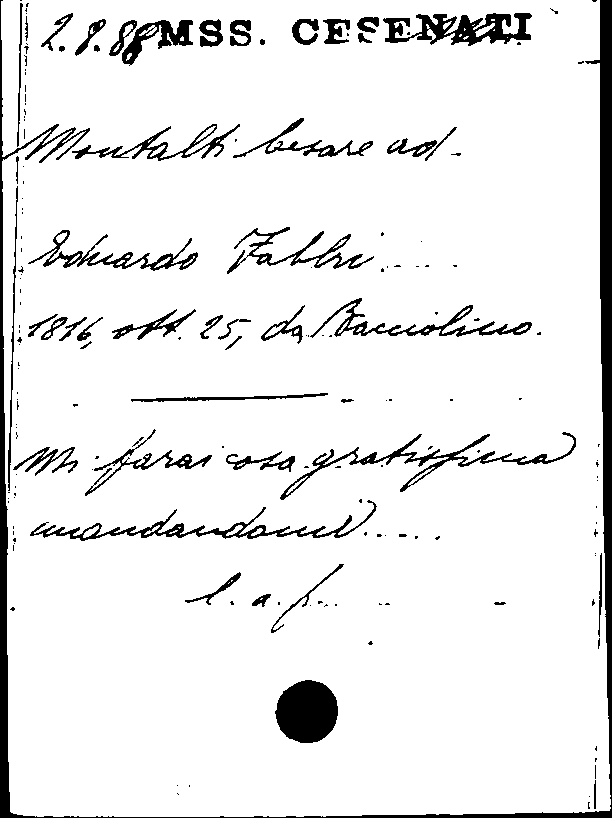 2.8.88 MSS. CESENATI
Montalti Cesare ad
Eduardo Fabbri
1816, ott. 25, da Bacciolino.
Mi farai cosa gratissima
mandandomi.....
l. a. f.